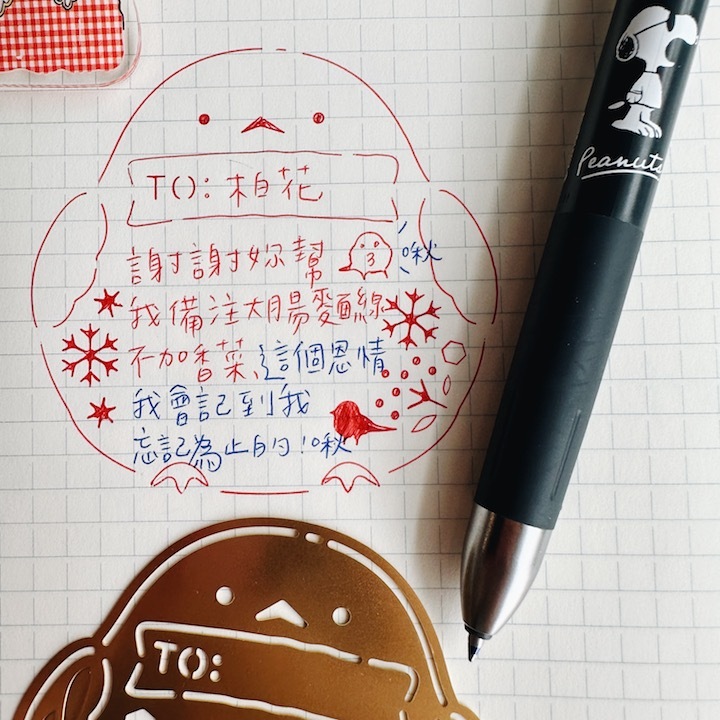 TO: 柏花
謝謝妳幫
啾
我備注大腸麵線
不加香菜,這個恩情
我會記到我
忘記為止的!啾
Peanuts
TO: